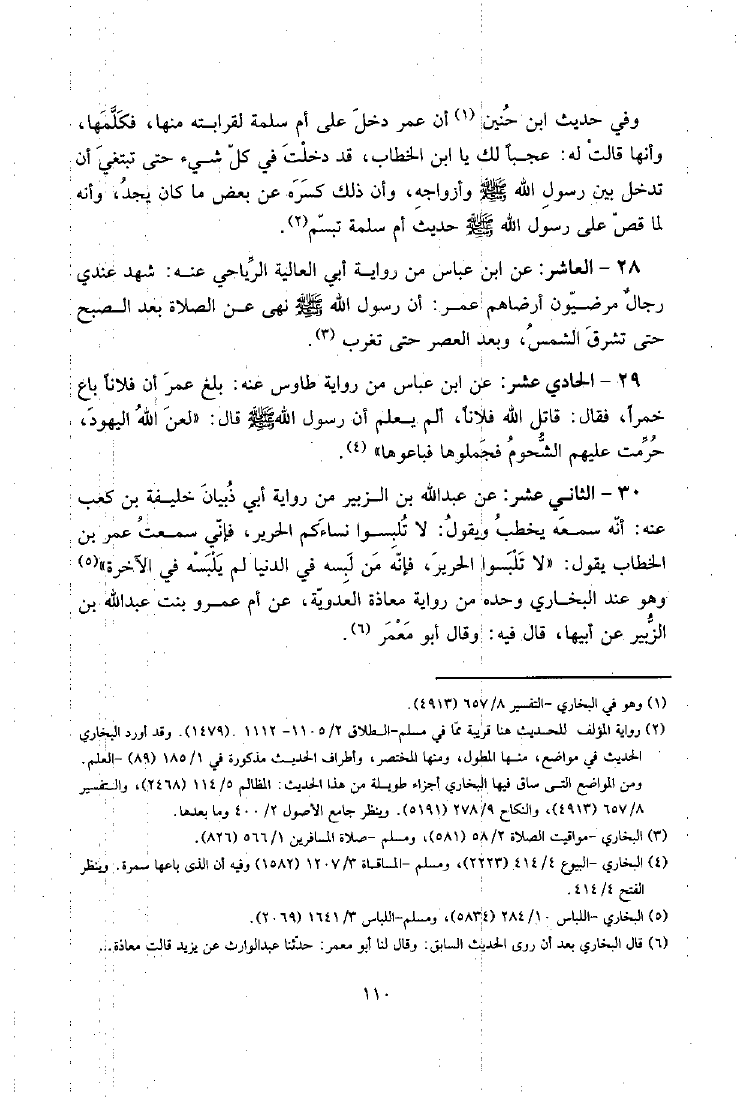 وفي حديث ابن حُنين (١) أن عمر دخلَ على أم سلمة لقرابته منها، فكَلَّمَها،
وأنها قالتْ له: عجباً لك يا ابن الخطاب، قد دخلْتَ في كلّ شيء حتى تبتغيَ أن
تدخل بين رسول الله ﷺ وأزواجه، وأن ذلك كسَرَه عن بعض ما كان يجدُ، وأنه
لما قصّ على رسول الله ﷺ حديث أم سلمة تبسّم(٢).
٢٨ - العاشر: عن ابن عباس من روايـة أبي العالية الرِّياحي عنـه: شهد عندي
رجالٌ مرضـيّون أرضاهم عمـر: أن رسول الله ﷺ نهى عـن الصلاة بعد الـصبح
حتى تشرقَ الشمسُ، وبعد العصر حتى تغرب (٣).
٢٩ - الحادي عشر: عن ابن عباس من رواية طاوس عنه: بلغ عمرَ أن فلاناً باع
خمراً، فقال: قاتل الله فلاناً، ألم يـعلم أن رسول اللهﷺ قال: «لعنَ اللهُ اليهودَ،
حُرِّمت عليهم الشُّحومُ فجَملوها فباعوها» (٤).
٣٠ - الثاني عشر: عن عبدالله بن الـزبير من رواية أبي ذُبيانَ خليفة بن كعب
عنه: أنّه سمعَه يخطبُ ويقولُ: لا تُلبِسـوا نساءَكم الحرير، فإنّي سمـعتُ عمرَ بن
الخطاب يقول: «لا تَلْبَسوا الحريرَ، فإنّه مَن لَبِسه في الدنيا لم يَلْبَسْه في الآخرة»(٥)
وهو عند البخـاري وحده من رواية معاذة العدويّة، عن أم عمـرو بنت عبدالله بن
الزُّبير عن أبيها، قال فيه: وقال أبو مَعْمَر (٦).
(١) وهو في البخاري -التفسير ٨/ ٦٥٧ (٤٩١٣).
(٢) رواية المؤلف للحـديث هنا قريبة ممّا في مسلم-الـطلاق ٢/ ١١٠٥- ١١١٢ .(١٤٧٩). وقد أورد البخاري
الحديث في مواضع، منـها المطول، ومنها المختصر، وأطراف الحديـث مذكورة في ١/ ١٨٥ (٨٩) -العلم.
ومن المواضع التـى ساق فيها البخاري أجزاء طويلـة من هذا الحديث: المظالم ٥/ ١١٤ (٢٤٦٨)، والـتفسير
٨/ ٦٥٧ (٤٩١٣)، والنكاح ٩/ ٢٧٨ (٥١٩١). وينظر جامع الأصول ٢/ ٤٠٠ وما بعدها.
(٣) البخاري -مواقيت الصلاة ٢/ ٥٨ (٥٨١)، ومسلم -صلاة المسافرين ١/ ٥٦٦ (٨٢٦).
(٤) البخاري -البيوع ٤/ ٤١٤ (٢٢٢٣)، ومسلم -المساقـاة ٣/ ١٢٠٧ (١٥٨٢) وفيه أن الذى باعها سمرة. وينظر
الفتح ٤/ ٤١٤.
(٥) البخاري -اللباس ١٠/ ٢٨٤ (٥٨٣٤)، ومسلم-اللباس ٣/ ١٦٤١ (٢٠٦٩).
(٦) قال البخاري بعد أن روى الحديث السابق: وقال لنا أبو معمر: حدّثنا عبدالوارث عن يزيد قالت معاذة...
١١٠